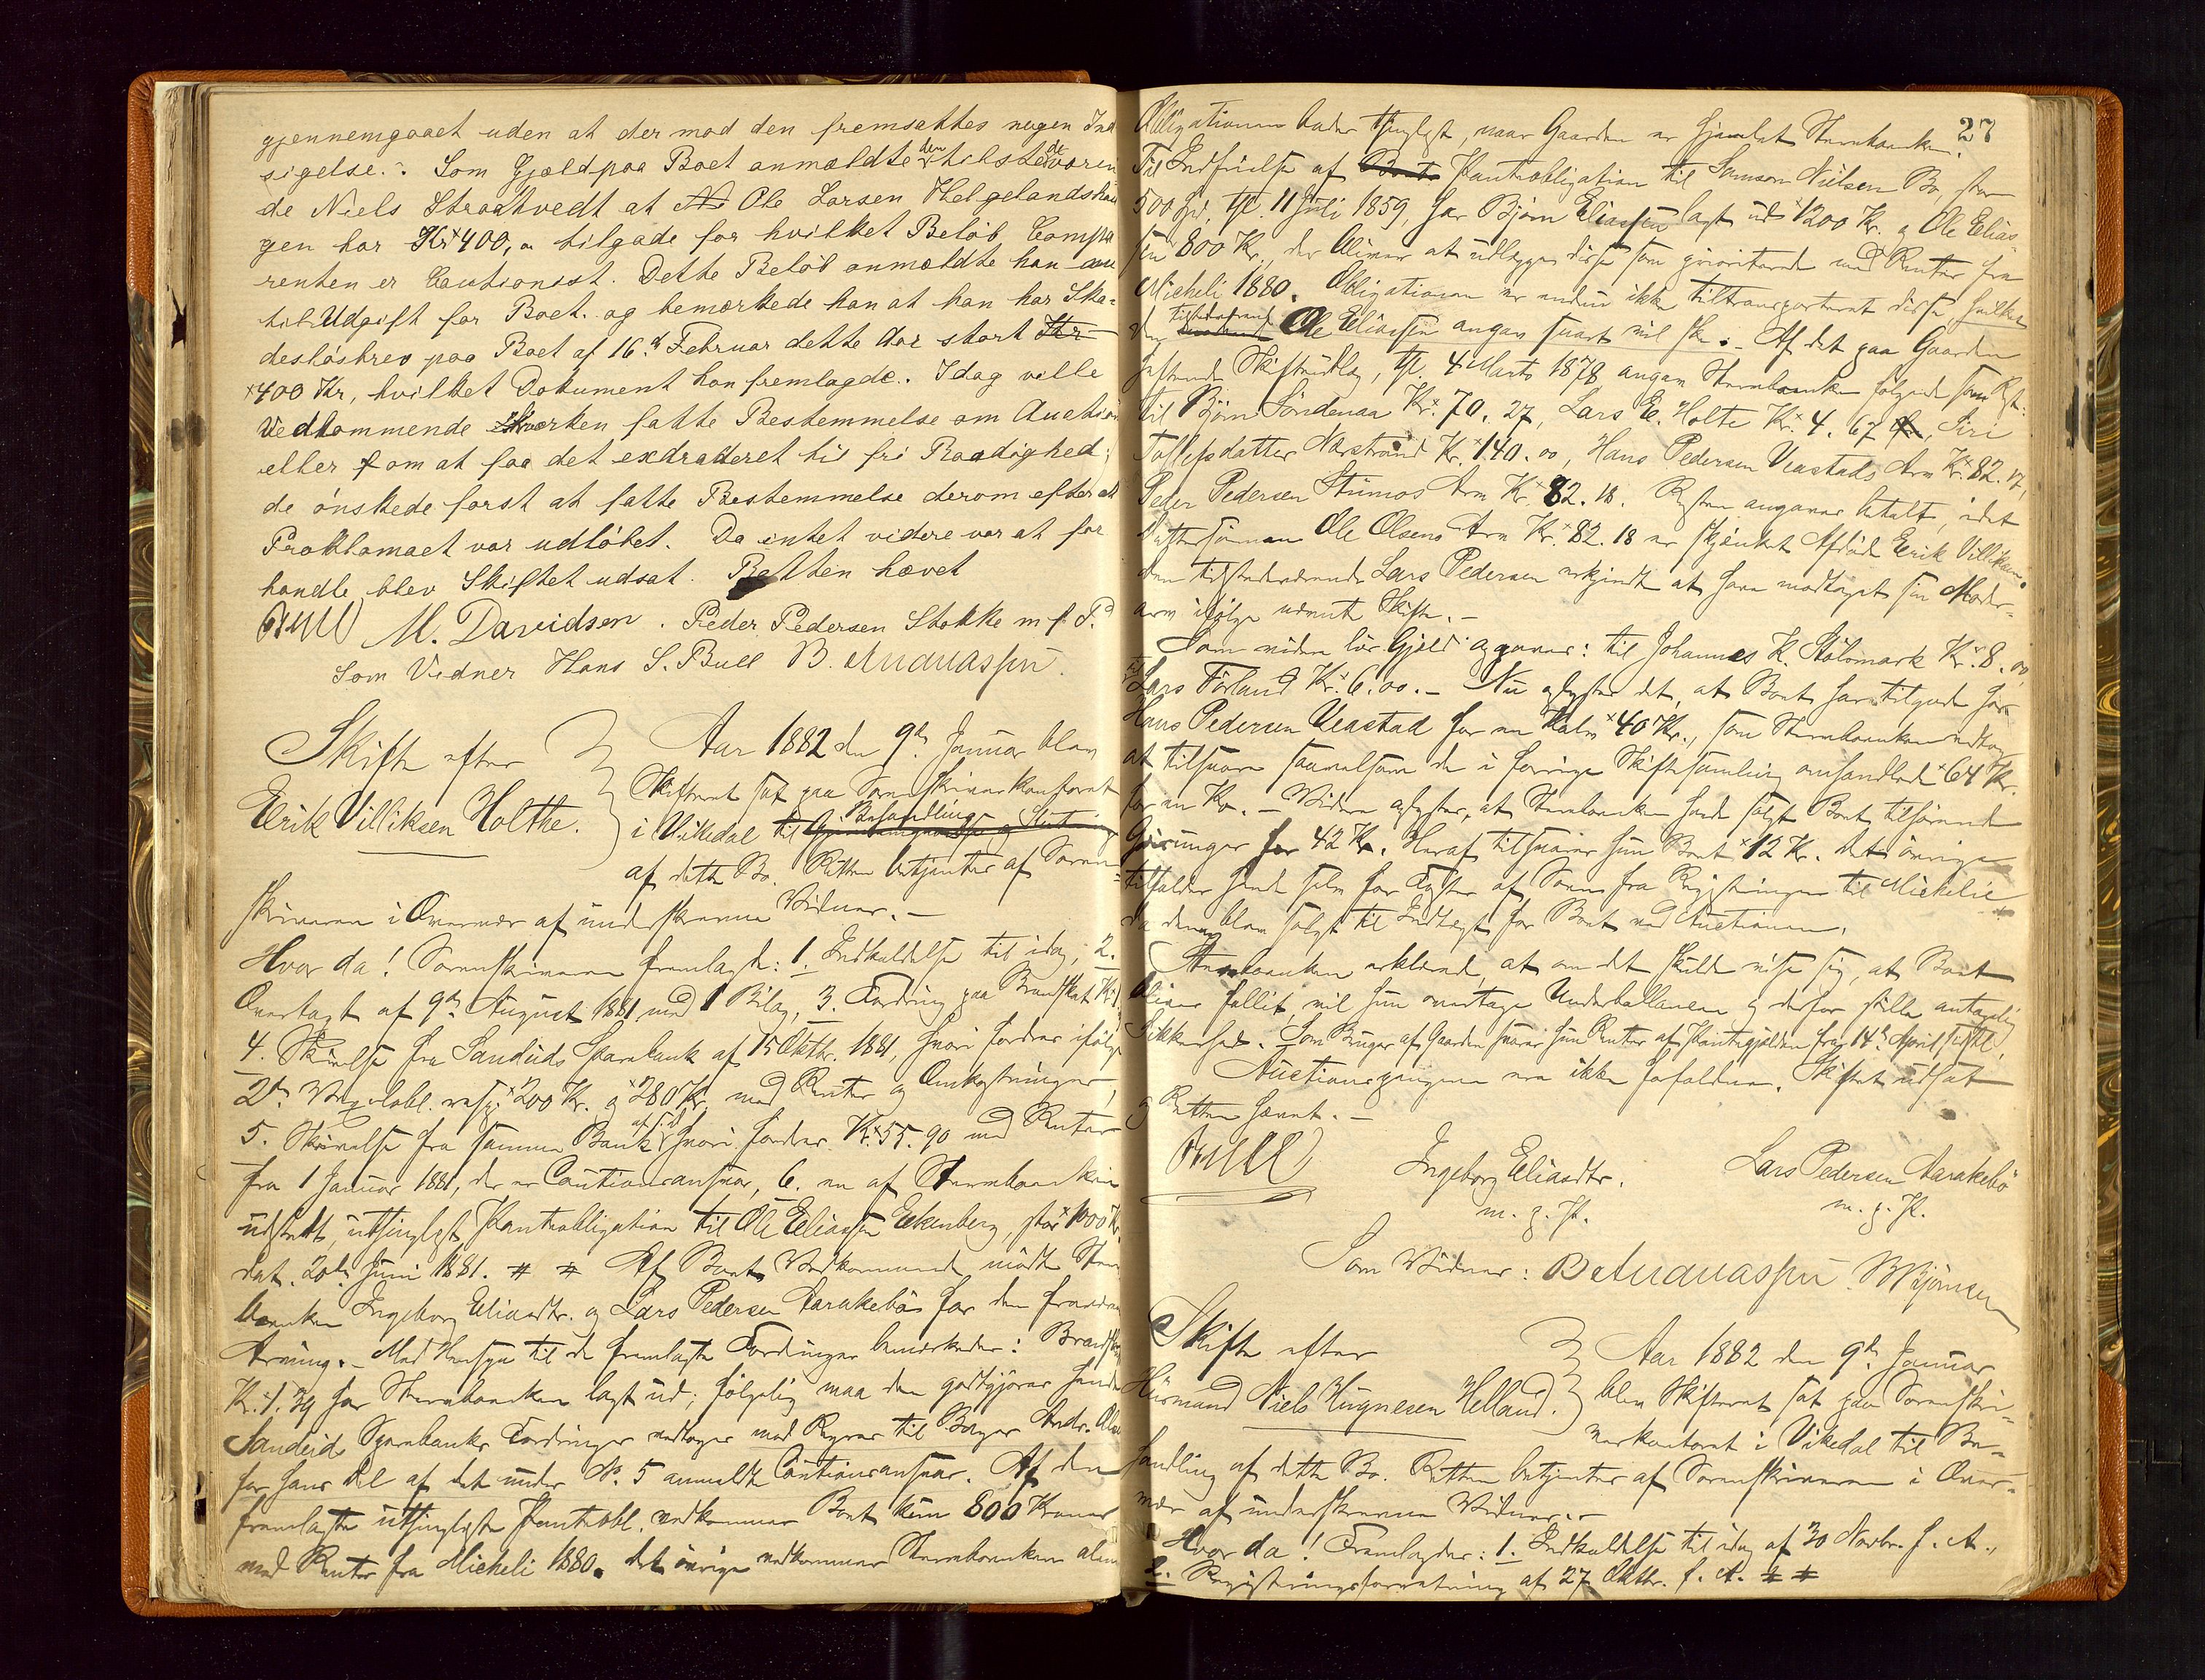 gjennemgaaet uden at der mod den fremsattes nogen Ind
sigelse. Som Gjæld paa Boet anmældte den tilstedeværen
de Niels Straatvedt at Ole Larsen Helgelandshau
gen har Kr x 400, tilgode for hvilket Beløb Compa
renten er Cautionist. Dette Beløb anmældte han
til Udgift for Boet. og bemærkede han at han har Ska-
desløsbrev paa Boet af 16de Februar dette Aar stort
x 400 Kr, hvilket Dokument han fremlagde. Idag ville
Vedkommende hverken fatte Bestemmelse om Auction
eller om at faa det extraderet til fri Raadighed;
de ønskede først at fatte Bestemmelse derom efter at
Proklamaet var udløbet. Da intet videre var at for
handle blev Skiftet udsat. Retten hævet
Bull M. Davidsen. Peder Pedersen Stokke m. f. P.
Som Vidner Hans S. Bull B. Andreassen
Skifte efter
Erik Villiksen Holthe.
Aar 1882 den 9de Januar blev
Skifteret sat paa Sorenskriverkontoret
i Vikedal til Behandling
af dette Bo. Retten betjentes af Soren-
skriveren i Overvær af underskrevne Vidner. -
Hvor da! Sorenskriveren fremlagde: 1. Indkaldelse til idag, 2.
Overtagt af 9de August 1881 med 1 Bilag, 3. Fordring paa Brandskat
4. Skrivelse fra Sandeids Sparebank af 15 Oktbr. 1881, hvori fordres ifølge
2de Vexelobl. resp. x 200 Kr. og x 280 Kr. med Renter og Omkostninger,
5. Skrivelse fra samme Bank hvori fordres Kr. x 55.90 med Renter
fra 1 Januar 1881, der er Cautionsansvar, 6. en af Stervboenken
udstedt, uthinglyst Panteobligation til Ole Eliassen Eikenberg, stor x 1000 Kr.
dat. 20de Juni 1881. Af Boets Vedkommende mødte Sterv
boenken Ingeborg Eliasdtr. og Lars Pedersen Aarakebø for den fraværende
Arving. - Med Hensyn til de fremlagte Fordringer bemærkedes: Brandskat
Kr. x 1.39 har Stervboenken lagt ud; følgelig maa den godtgjøres hende
Sandeids Sparebanks Fordringer vedtoges med Regres til
for hans Del af det under No. 5 anmeldte Cautionsansvar. Af den
fremlagte uthinglyste Panteobl. vedkommer Boet kun 800 Kroner
med Renter fra Micheli 1880. Det øvrige vedkommer Stervboenken alene
27
Obligationen bedes thinglyst, naar Gaarden er hjemlet Stervboenken.
Til Indfrielse af Panteobligation til Samson Nielsen Bø, stor
500 Spd., thl. 11 Juli 1859, har Bjørn Eliassen lagt ud x 1200 Kr. og Ole Elias-
sen 800 Kr., der bliver at udlægges disse som prioriterede med Renter fra
Micheli 1880. Obligationen er endnu ikke tiltransporteret disse, hvilket
den tilstedeværende Ole Eliassen angav snart vil ske. - Af det paa Gaarden
heftende Skifteudlæg, thl. 4 Marts 1878, angav Stervboenken følgende som Rest:
til Bjørn Søndenaa Kr. 70.27, Lars E. Holte Kr. 4.67, Siri
Tollefsdatter Nærstrand Kr. x 140.00, Hans Pedersen Veastads Arv Kr. x 82.17,
Peder Pedersen Stumos Arv Kr. x 82.18. Resten angaves betalt, idet
Dattersønnen Ole Olsens Arv Kr. x 82.18 er skjænket Afdøde Erik Villiksen.
Den tilstedeværende Lars Pedersen erkjendte at have modtaget sin Moder-
arv ifølge nævnte Skifte. -
Som videre løs Gjæld opgaves: til Johannes K. Stølsmark Kr. x 8.00,
til Lars Førland Kr. x 6.00. - Nu oplystes det, at Boet har tilgode hos
Hans Pedersen Veastad for en Kalv x 40 Kr., som Stervboenken vedtog
at tilsvare saavelsom de i forrige Skiftesamling omhandlede x 64 Kr.
for en Ko. - Videre oplystes, at Stervboenken havde solgt Boet tilhørende
Gjæringer for 42 Kr. Heraf tilsvarer hun Boet x 12 Kr. Det øvrige
tilfalder hende selv for Kosten af Søen fra Registreringen til Michelie
da den blev solgt til Indtægt for Boet ved Auctionen.
Stervboenken erklærede, at om det skulde vise sig, at Boet
bliver fallit, vil hun overtage Underballancen og derfor stille antagelig
Sikkerhed. Som Bruger af Gaarden svarer hun Renter af Pantegjælden fra 14de April sidstl.
Auctionspengene ere ikke forfaldne. Skiftet udsat
og Retten hævet. -
Bull
Ingeborg Eliasdtr.
m. p. P.
Lars Pedersen Aarakebø
m. p. P.
Som Vidner: B Andreassen. Bjørnsen
Skifte efter
Husmand Niels Hugnesen Helland.
Aar 1882 den 9de Januar
blev Skifteret sat paa Sorenskri-
verkontoret i Vikedal til Be-
handling af dette Bo. Retten betjentes af Sorenskriveren i Over-
vær af underskrevne Vidner. -
Hvor da! Fremlagdes: 1. Indkaldelse til idag af 30 Novbr. f. A.,
2. Registreringsforretning af 27 Oktbr. f. A.